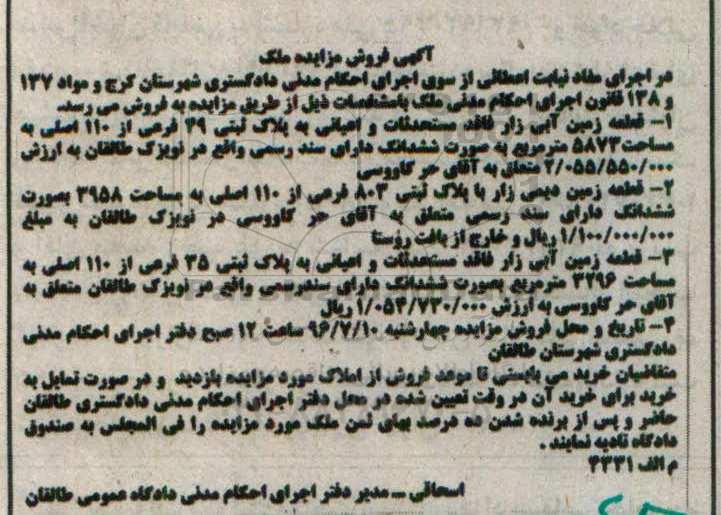 آگهی فروش مزایده ملک
در اجرای مفاد نیابت اعطائی از سوی اجرای احکام مدنی دادگستری شهرستان کرج و مواد ۱۳۷
و ۱۳۸ قانون اجرای احکام مدنی ملک بامشخصات ذیل از طریق مزایده به فروش می رسد.
۱- قطعه زمین آبی زار فاقد مستحدثات و اعیانی به پلاک ثبتی ۲۹ فرعی از ۱۱۰ اصلی به
مساحت ۵۸۷۳ مترمربع به صورت ششدانگ دارای سند رسمی واقع در نویزک طالقان به ارزش
۲/۰۵۵/۵۵۰/۰۰۰ متعلق به آقای حر کاووسی
۲- قطعه زمین دیمی زار با پلاک ثبتی ۸۰۳ فرعی از ۱۱۰ اصلی به مساحت ۳۹۵۸ بصورت
ششدانگ دارای سند رسمی متعلق به آقای حر کاووسی در نویزک طالقان به مبلغ
۱/۱۰۰/۰۰۰/۰۰۰ ریال و خارج از بافت روستا
۳- قطعه زمین آبی زار فاقد مستحدثات و اعیانی به پلاک ثبتی ۳۵ فرعی از ۱۱۰ اصلی به
مساحت ۳۲۹۶ مترمربع بصورت ششدانگ دارای سندرسمی واقع در نویزک طالقان متعلق به
آقای حر کاووسی به ارزش ۱/۰۵۴/۷۳۰/۰۰۰ ریال
۴- تاریخ و محل فروش مزایده چهارشنبه ۹۶/۷/۱۰ ساعت ۱۲ صبح دفتر اجرای احکام مدنی
دادگستری شهرستان طالقان
متقاضیان خرید می بایستی تا موعد فروش از املاک مورد مزایده بازدید و در صورت تمایل به
خرید برای خرید آن در وقت تعیین شده در محل دفتر اجرای احکام مدنی دادگستری طالقان
حاضر و پس از برنده شدن ده درصد بهای ثمن ملک مورد مزایده را فی المجلس به صندوق
دادگاه تادیه نمایند.
م الف ۴۳۳۱
اسحاقی – مدیر دفتر اجرای احکام مدنی دادگاه عمومی طالقان